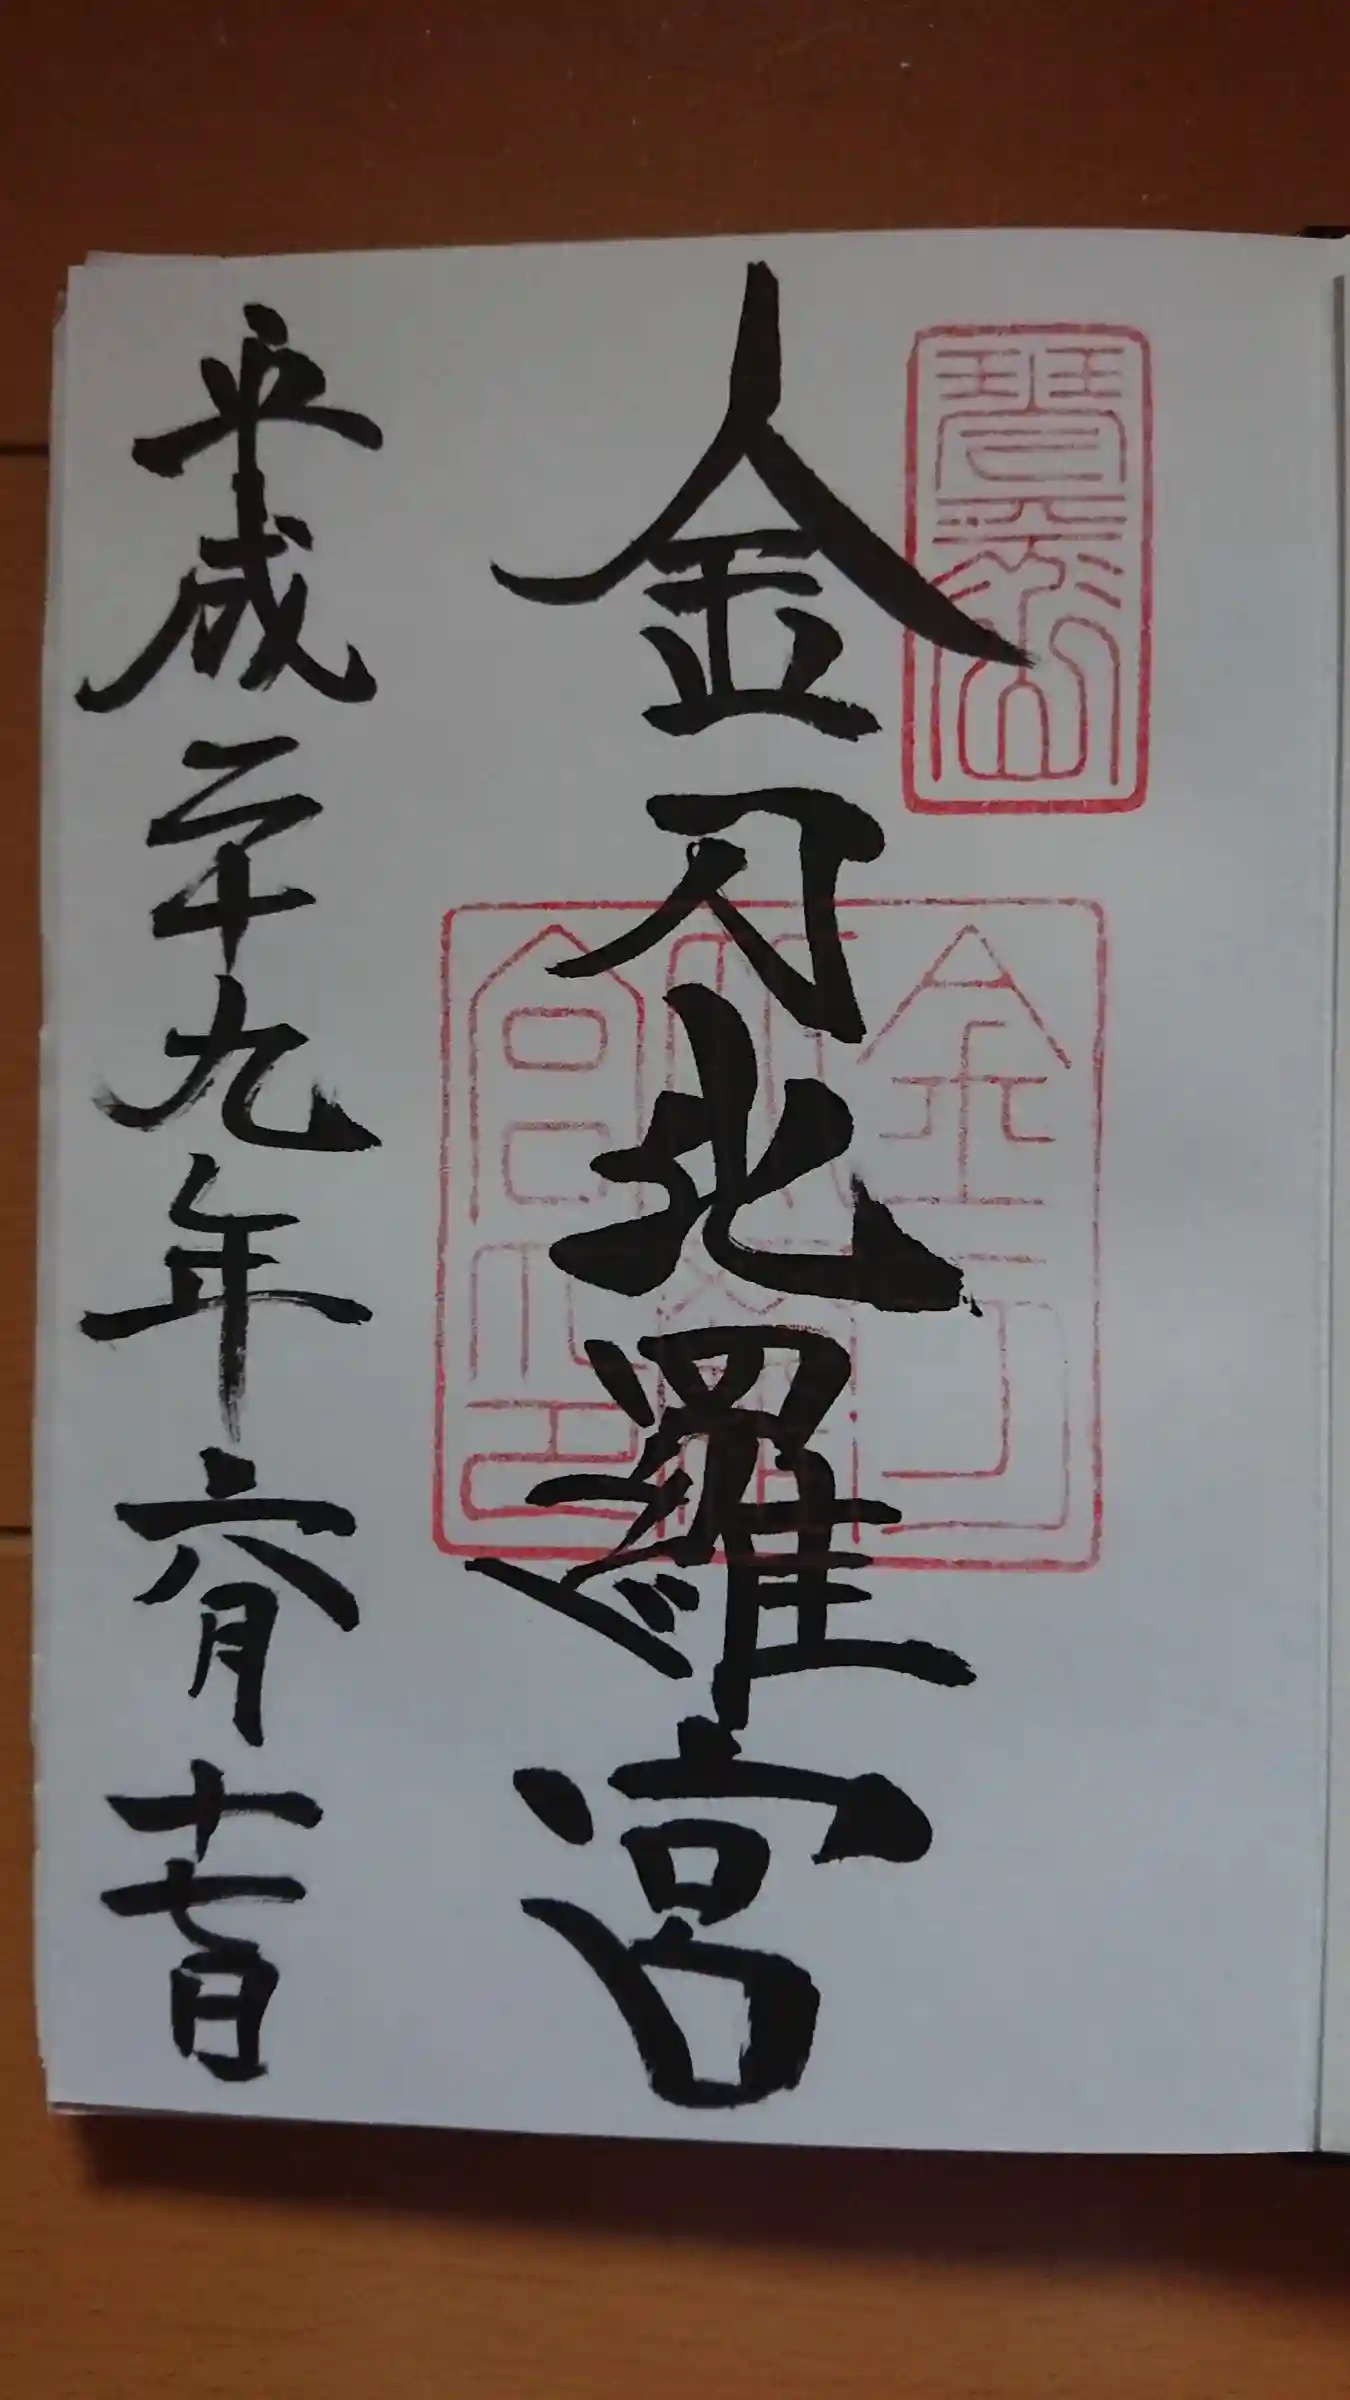 琴平山
金刀比羅宮
金刀比羅宮印
平成二十九年六月十七日